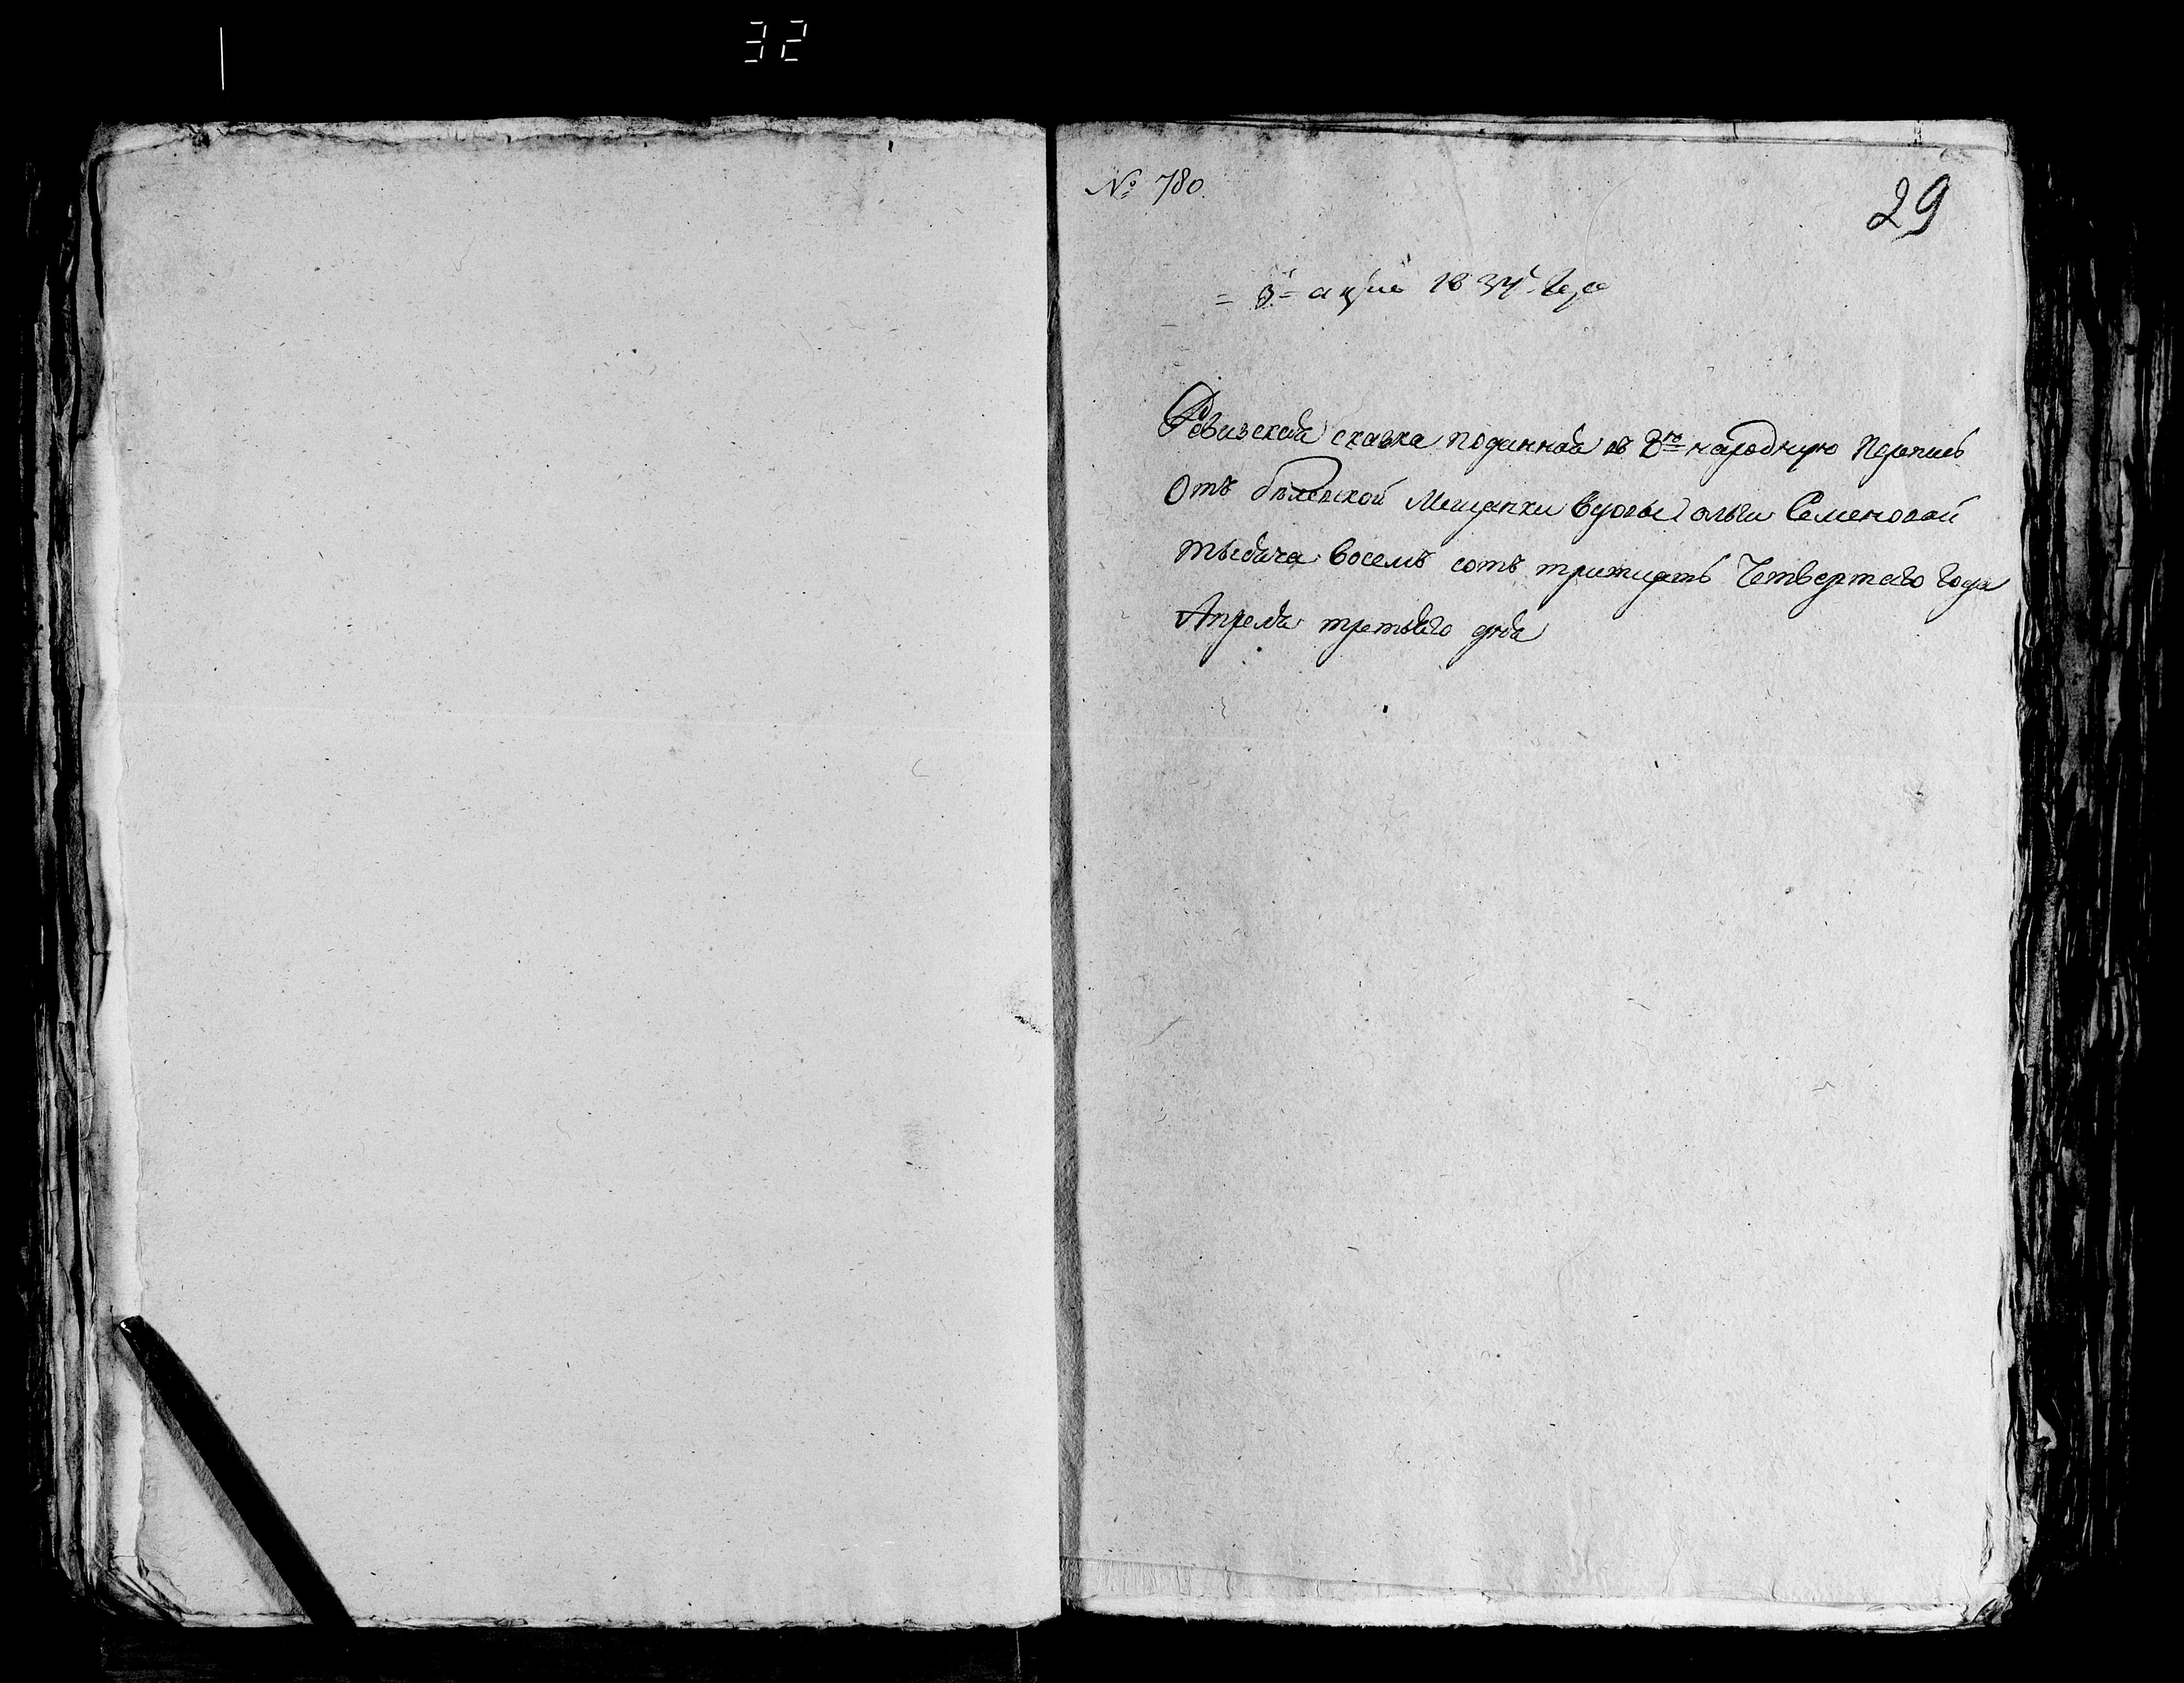 32
№ 780.
29
= 3 = апрѣля 1834 Года
Ревизская сказка поданная въ 8ю народную перепись
Отъ бѣлевской Мещанки Вдовы ольги Семеновой
тысяча Восемъ сотъ тритцать Четвертаго Года
Апреля третьяго дня